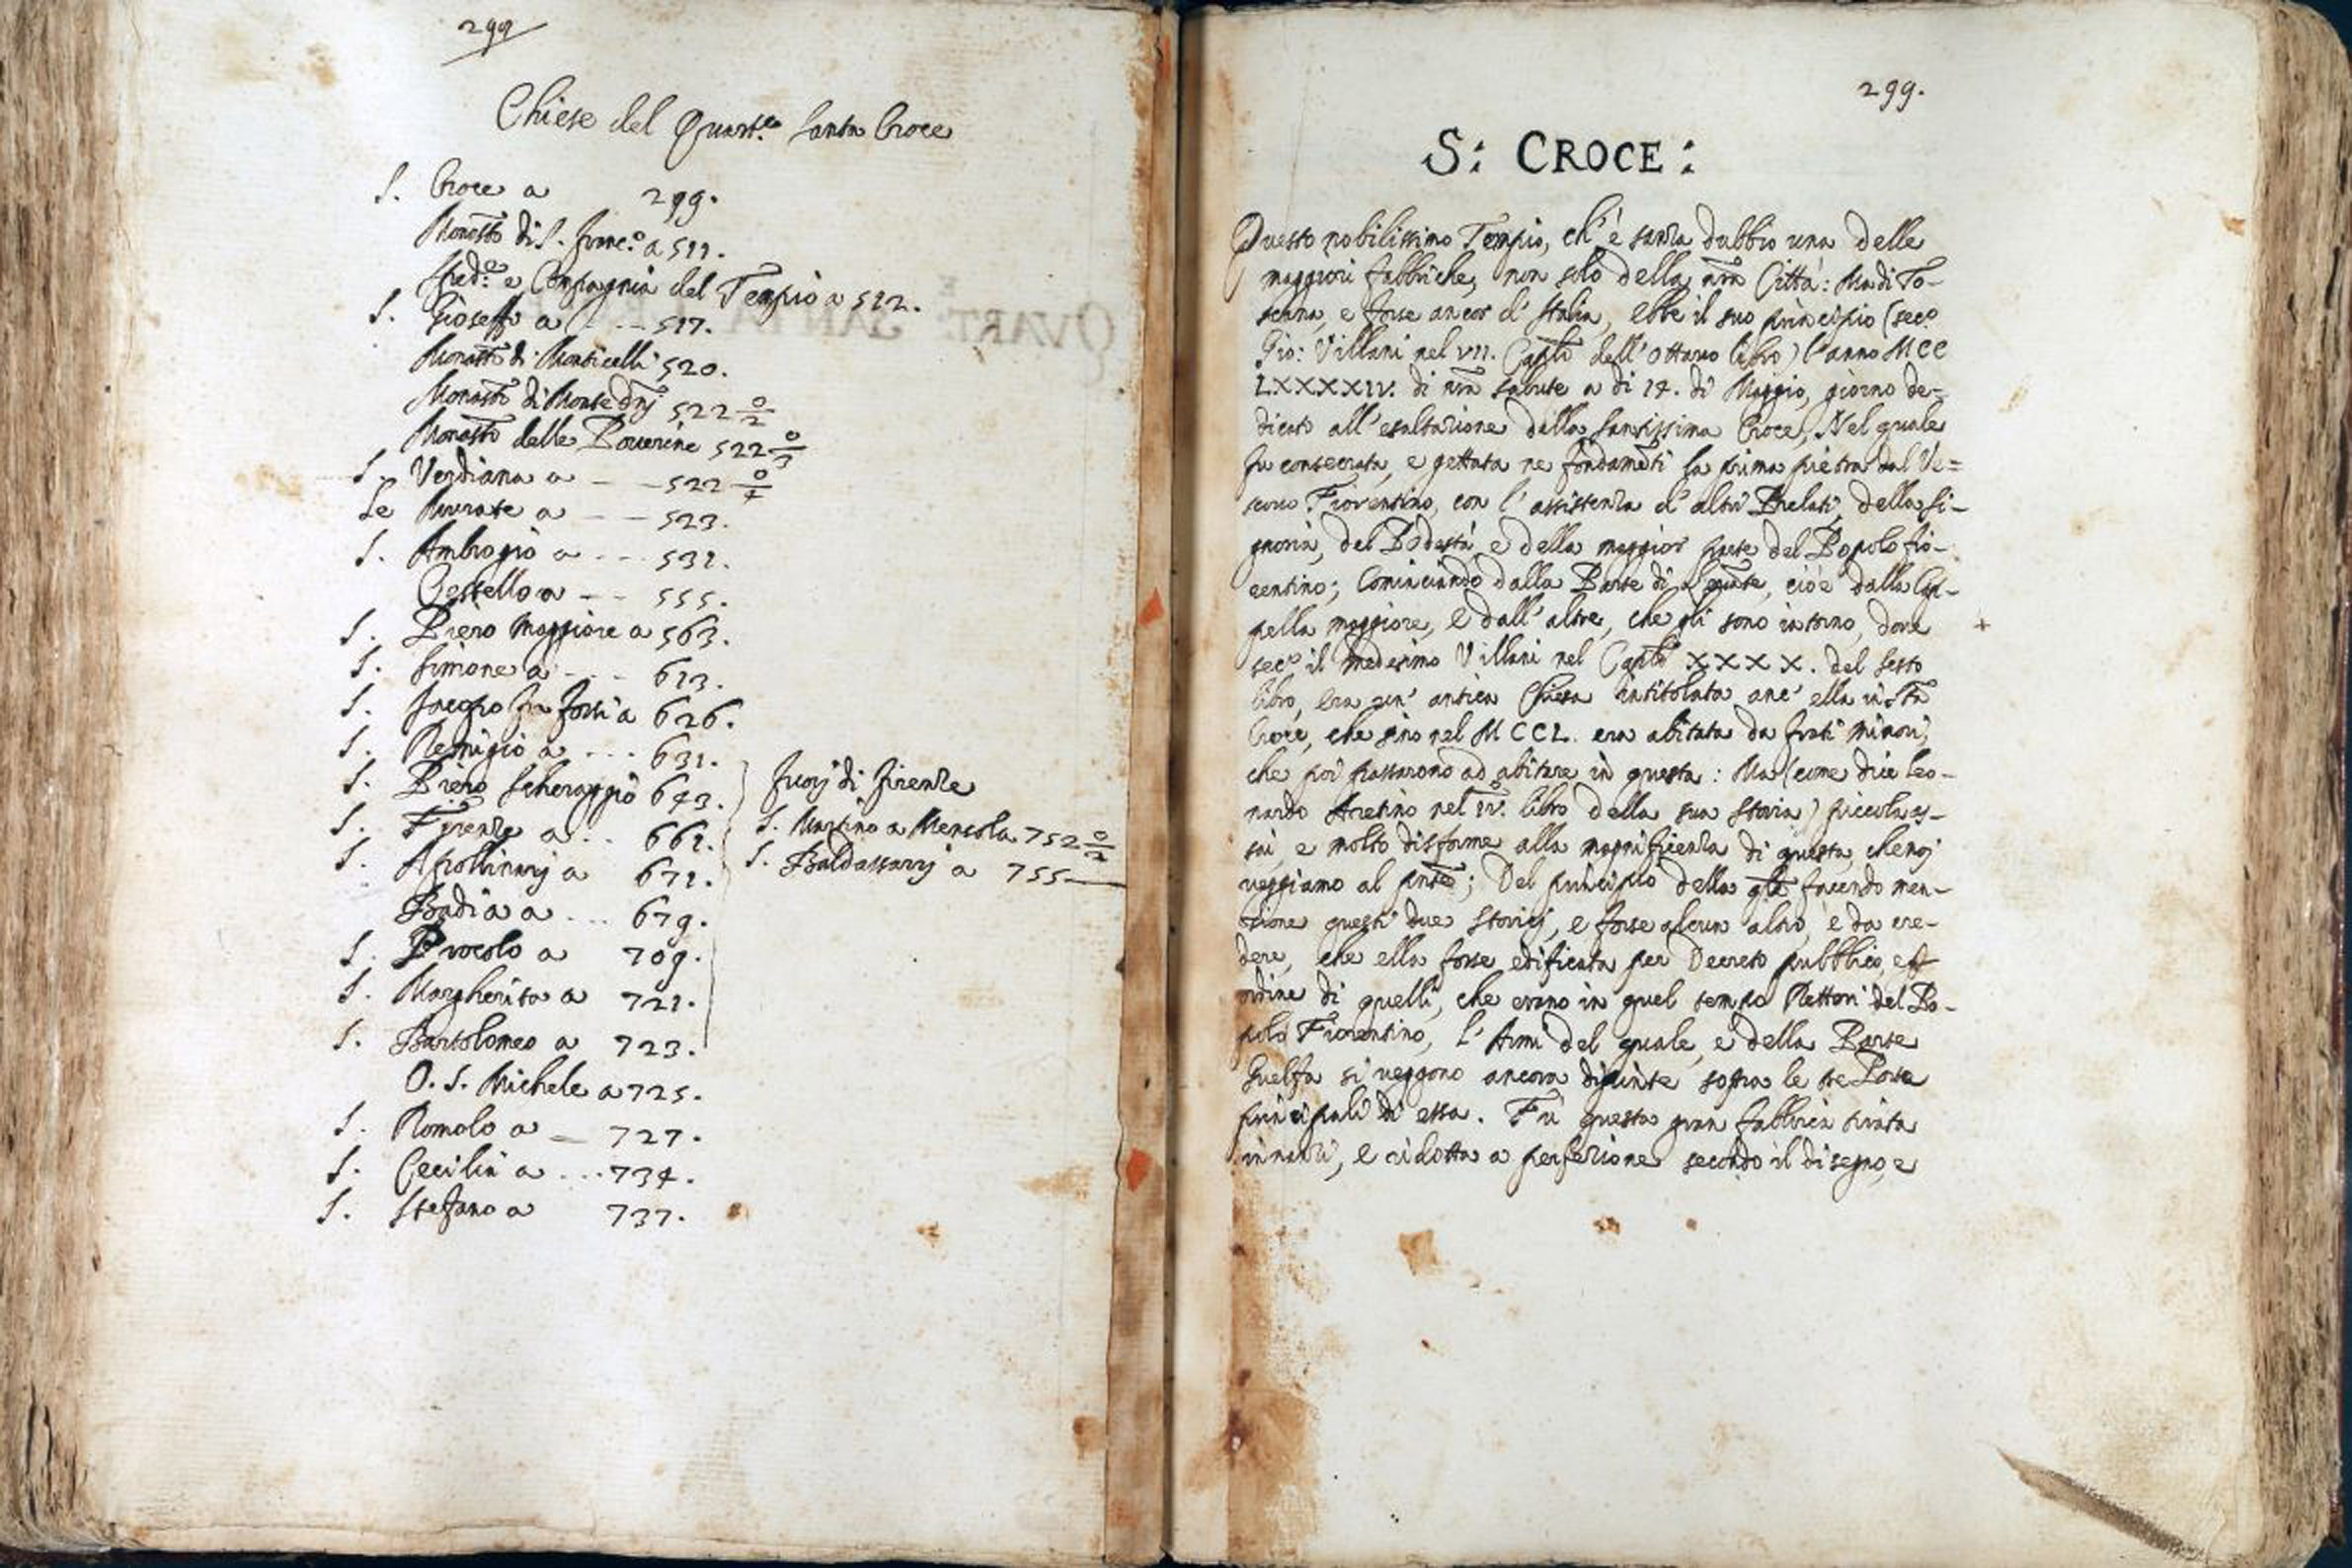 299
Chiese del Quart.re Santa Croce
S. Croce a 299.
Monasto di S. Franc.o a 511.
Sped.e e Compagnia del Tempio a 512.
S. Gioseffo a - - - 517.
Monasto di Monticelli 520.
Monasto di Monte Dnj 522 0/2
Monasto delle Poverine 522 0/3
S. Verdiana a - - 522 0/4
Le Murate a - - 523.
S. Ambrogio a - - - 531.
Cestello a - - 555.
S. Piero Maggiore a 563.
S. Simone a - - - 613.
S. Jacopo fra fossi a 626.
S. Remigio a . . . 631.
S. Piero Scheraggio 643.
S. Firenze a . . . 661.
S. Apollinarj a 671.
Badia a . . . 679.
S. Procolo a 709.
S. Margherita a 721.
S. Bartolomeo a 723.
O. S. Michele a 725.
S. Romolo a - 727.
S. Cecilia a . . . 734.
S. Stefano a 737.
fuorj di firenze
S. Martino a Mensola 752 0/2
S. Baldassarj a 755
QVART.E SANTA
299.
S: CROCE:
Questo nobilissimo Tempio, ch'è sanza dubbio una delle
maggiori fabbriche, non solo della nrã Città: Ma di To-
scana, e forse ancor d'Italia, ebbe il suo principio (sec.o
Gio: Villani nel VII. Caplo dell'ottavo libro) l'anno MCC
LXXXXIV. di nrã salute a di 14. di Maggio, giorno de-
dicato all'esaltazione della Santissima Croce, Nel quale
fu consecrata, e gettata ne fondamẽti la prima pietra dal Ve=
scovo Fiorentino, con l'assistenza d'altri Prelati, della Si-
gnoria, del Podestà, e della maggior parte del Popolo fio-
rentino; Cominciando dalla Parte di Levante, cioè dalla Cap-
pella maggiore, e dall'altre, che gli sono intorno, dove +
sec.o il medesimo Villani nel Caplo XXXX. del sesto
libro, era un'antica Chiesa intitolata anc'ella in Sta
Croce, che sino nel MCCL. era abitata da frati minori,
che poi passarono ad abitare in questa: Ma (come dice Leo-
nardo Aretino nel IV. libro della sua storia) piccola as-
sai, e molto disforme alla magnificenza di questa, che noj
veggiamo al pnte; Del principio della qle facendo men-
zione questi due storicj, e forse alcun altro, è da cre-
dere, che ella fosse edificata per Decreto pubblico, e p
ordine di quelli, che erano in quel tempo Rettori del Po-
polo Fiorentino, l'Armi del quale, e della Parte
Guelfa si veggono ancora dipinte sopra le tre Porte
principali di essa. Fù questa gran fabbrica tirata
innanzi, e ridotta a perfezione secondo il disegno, e